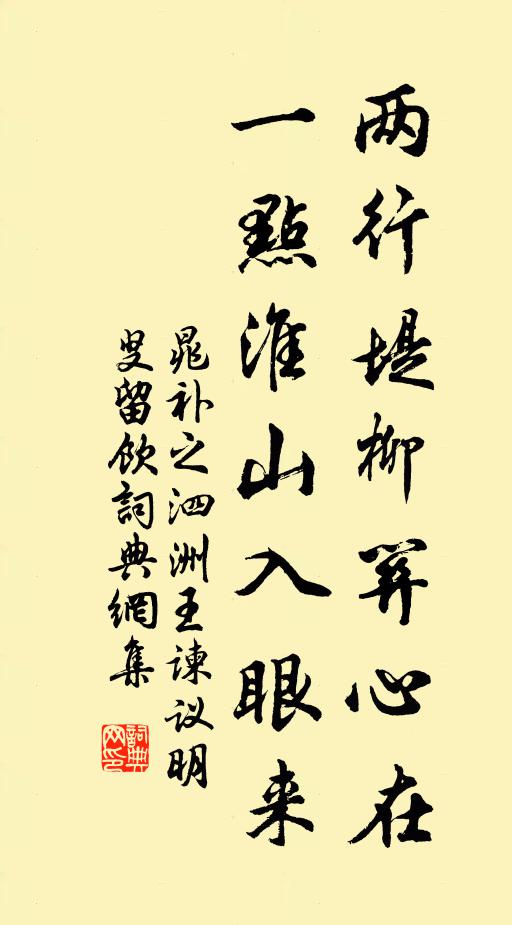 两行堤柳关心在
一點淮山入眼来
晁补之泗洲王谏议明
叟留饮詞典網集
詞典
网印